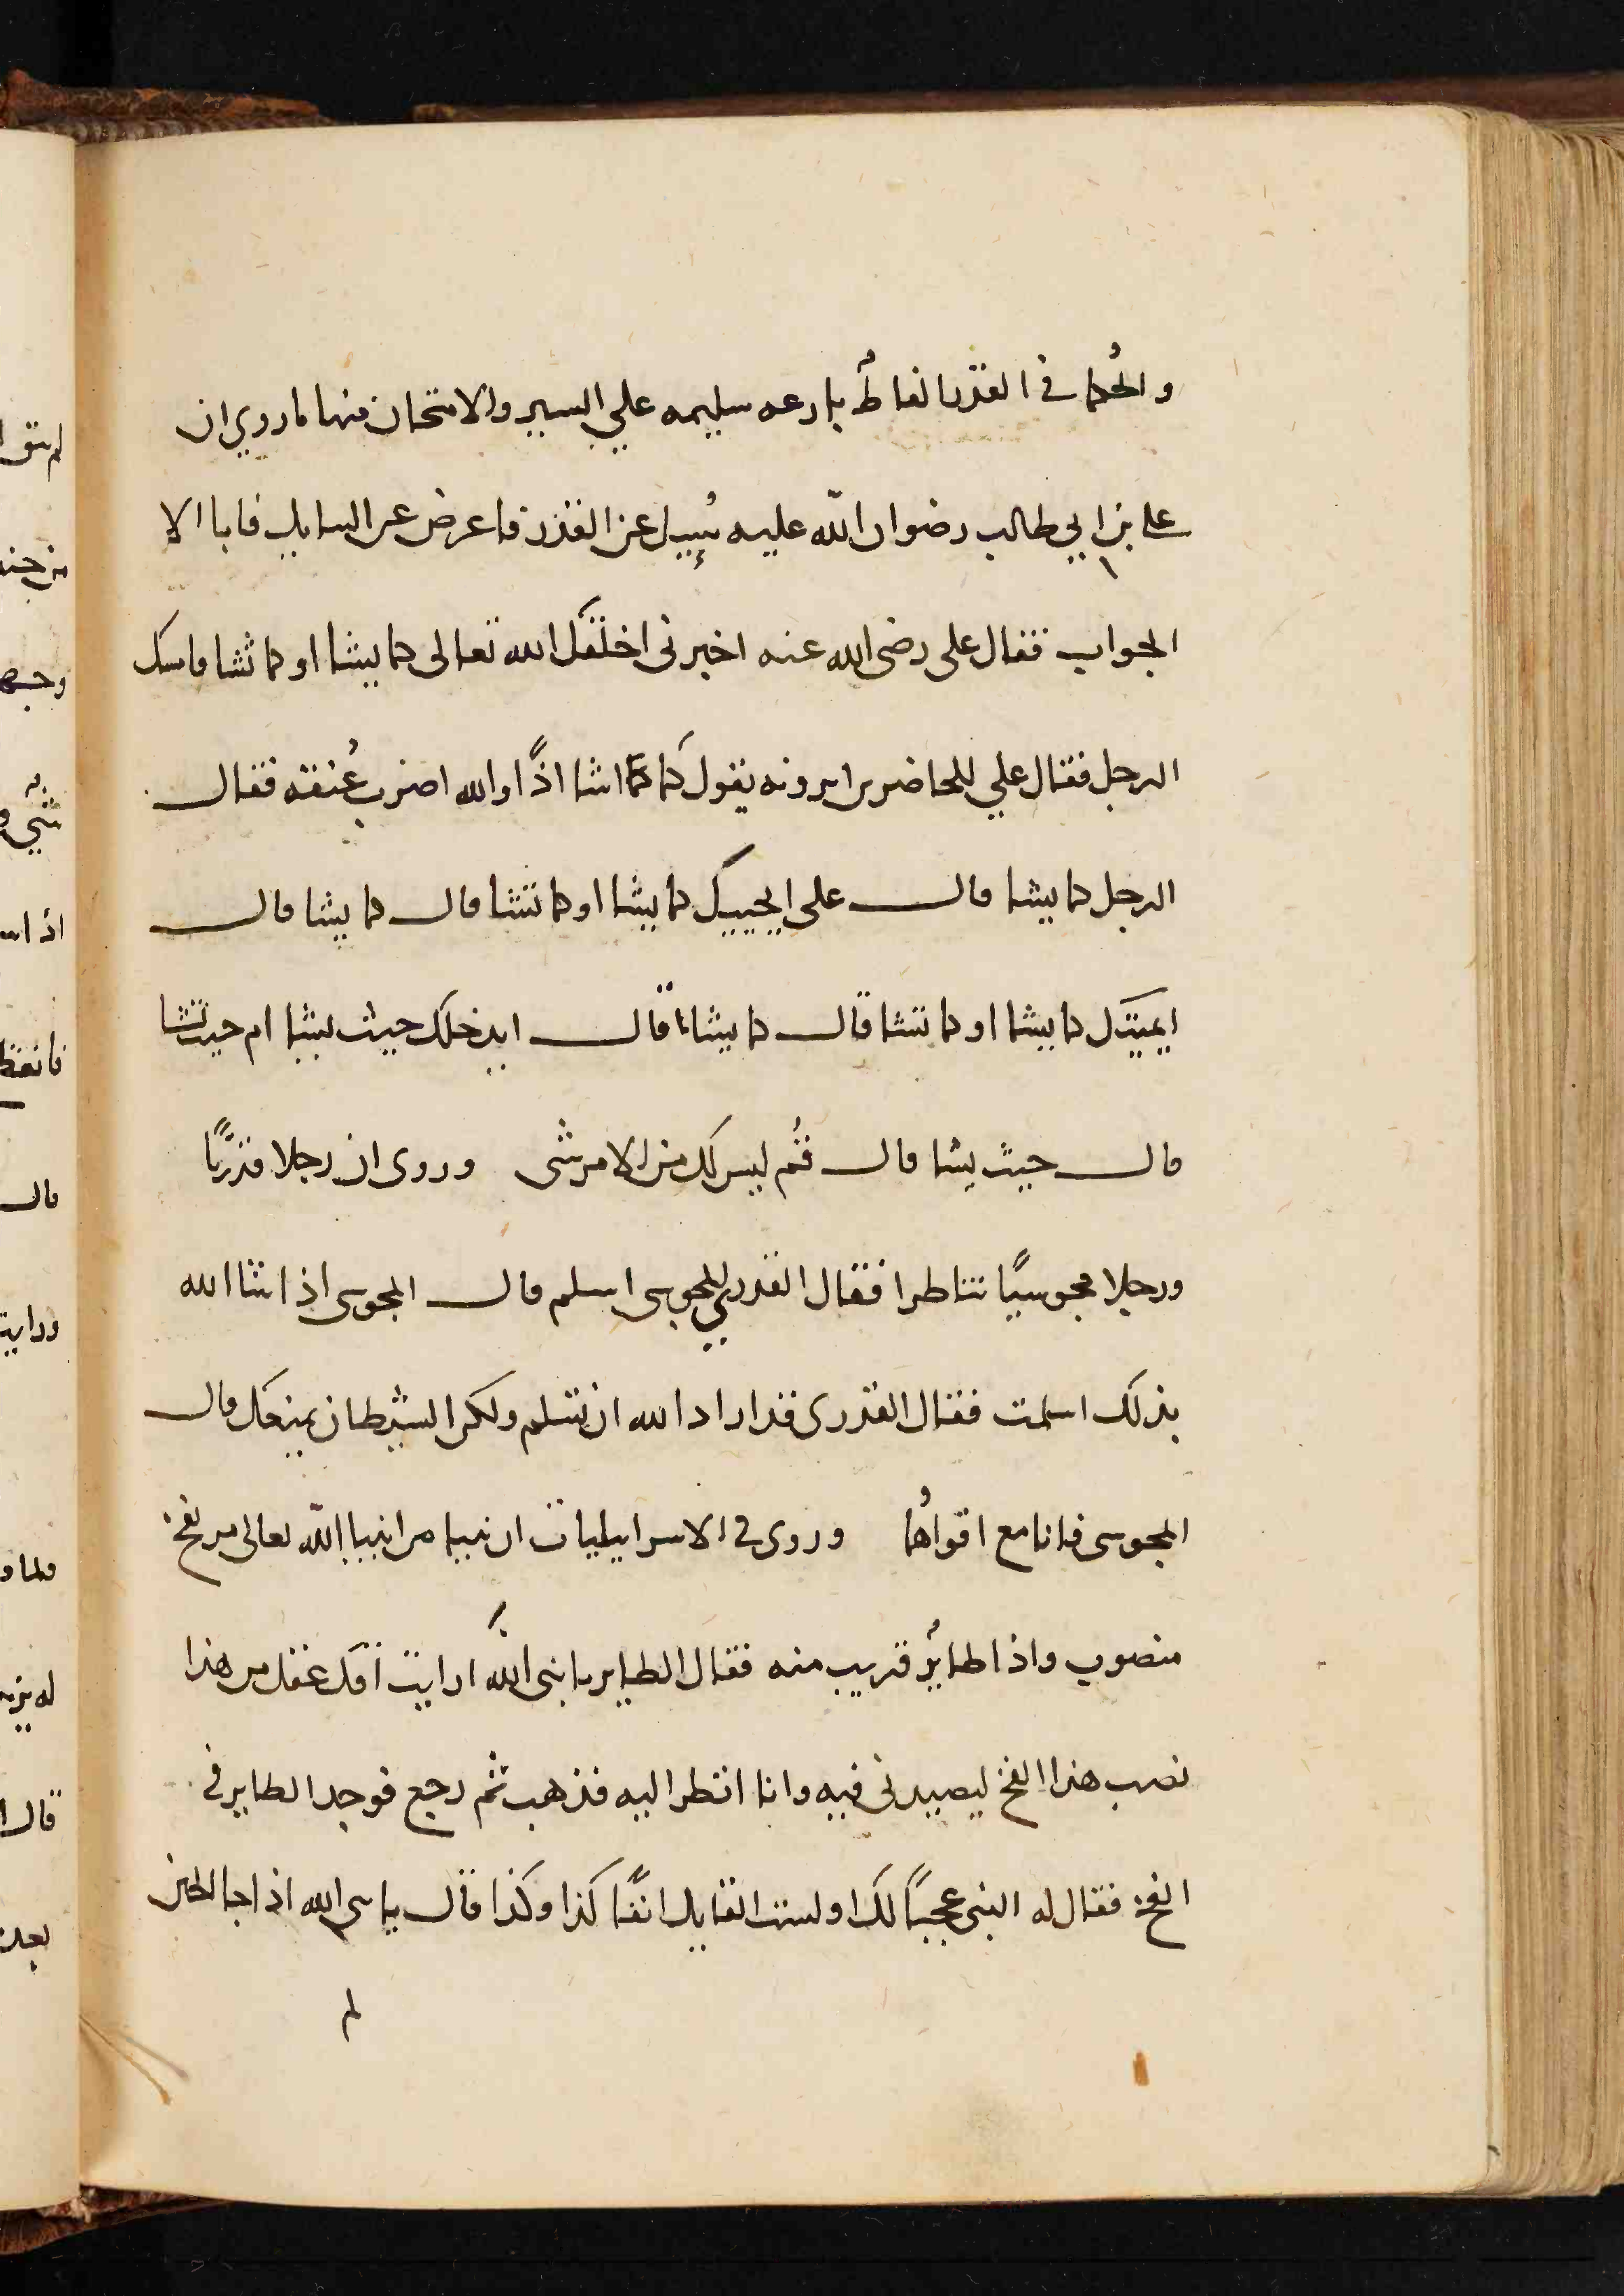 وللحُكما في القدر الفاظٌ بارعه سليمه علي السير والامتحان فمنها ما روي ان
على بن ابي طالب رضوان الله عليه سُيِل عن القدر فاعرض عن السايل فابا الا
الجواب فقال على رضى الله عنه اخبرنى اخلقَك الله تعالى كما يشا او كما تشا فامسك
الرجل فقال علي للحاضرين اترونه يقول كما اشا اذًا والله اضرب عُنقه فقال
الرجل كما يشا قال على ايحييك كما يشا او كما تشا قال كما يشا قال
ايميتك كما يشا او كما تشا قال كما يشا قال ايدخلك حيث يشا ام حيث تشا
قال حيث يشا قال قُم ليس لك من الامر شى وروى ان رجلا قدريًّا
ورجلا مجوسيًا تناظرا فقال القدري للمجوسى اسلم قال المجوسى اذا شا الله
بذلك اسلمت فقال القدرى قد اراد الله ان تسلم ولكن الشيطان يمنعك قال
المجوسى فانا مع اقواهُما وروى في الاسرايليات ان نبيا من انبيا الله تعالى مر بفخ
منصوب واذا طايرٌ قريب منه فقال الطاير يا نبى الله ارايت اقل عقل من هذا
نصب هذا الفخ ليصيدنى فيه وانا انظر اليه فذهب ثم رجع فوجد الطاير في
الفخ فقال له النبى عجبًا لك اولست القايل انفًا كذا وكذا قال يا نبى الله اذا جا الحين
لم